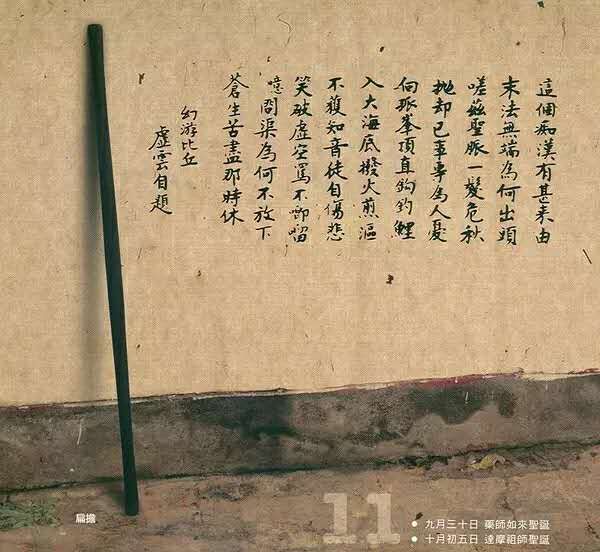 這個痴漢有甚來由
末法無端為何出頭
嗟茲聖脈一髮危秋
拋却己事專為人憂
向孤峯頂直鈎釣鯉
入大海底撥火煎漚
不獲知音徒自傷悲
笑破虛空罵不唧𠺕
噫問渠為何不放下
蒼生苦盡那時休
幻游比丘
虛雲自題
扁擔
11
九月三十日 藥師如來聖誕
十月初五日 達摩祖師聖誕